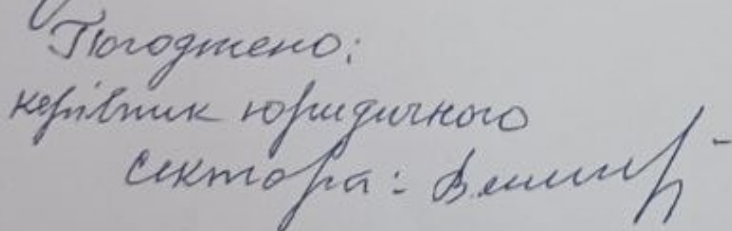 Погоджено:
керівник юридичного
сектора: